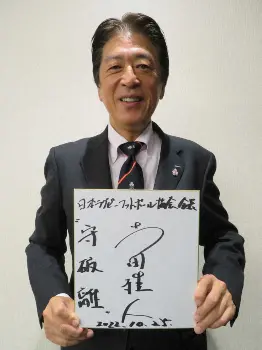 日本ラグビーフットボール協会 会長
土田雅人
"守破離"
2022.10.25.